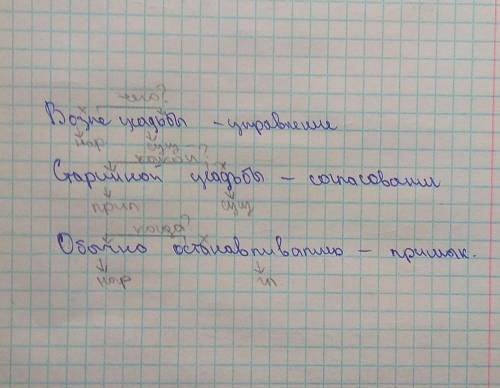 чего?
Возле усадьбы – управление
нар сущ
какой?
Старинной усадьбы – согласование
прил сущ
когда?
Обычно останавливаюсь – примык.
нар гл